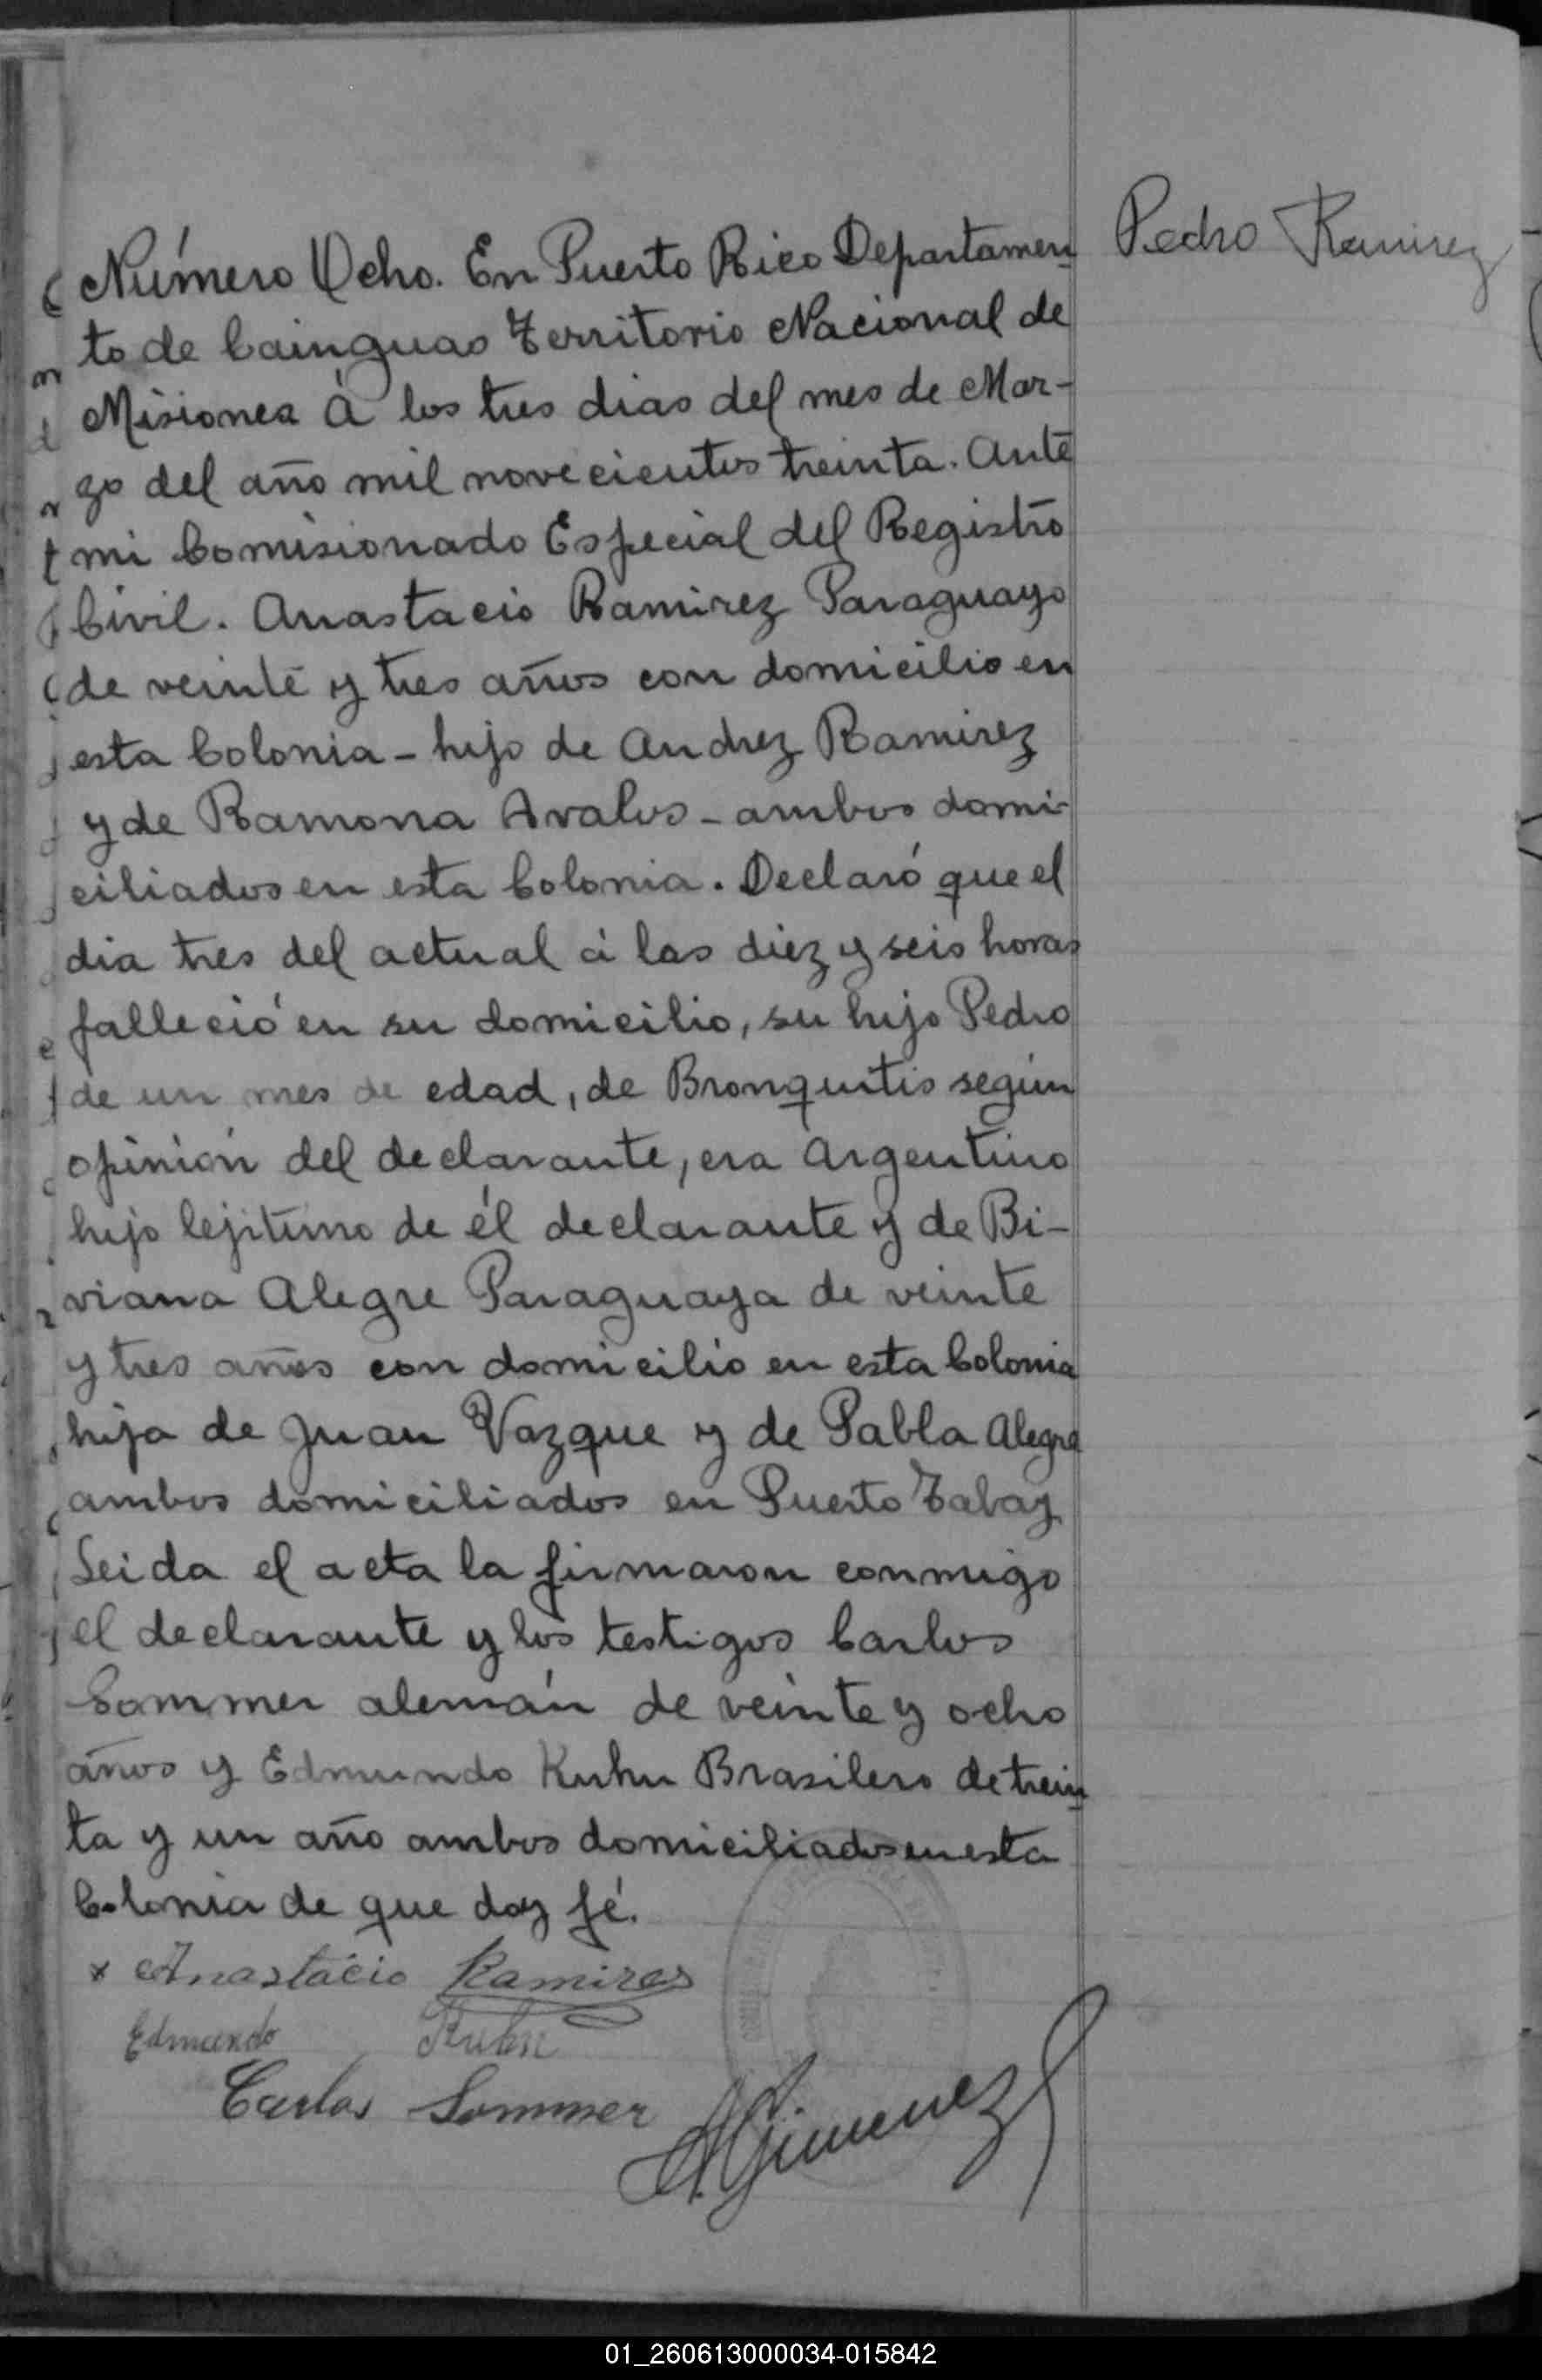 Pedro Ramirez
Número Ocho. En Puerto Rico Departamen
to de Cainguas Territorio Nacional de
Misiones á los tres dias del mes de Mar-
zo del año mil novecientos treinta. Ante
mi Comisionado Especial del Registro
Civil. Anastacio Ramirez Paraguayo
de veinte y tres años con domicilio en
esta Colonia - hijo de Andrez Ramirez
y de Ramona Avalos - ambos domi-
ciliados en esta Colonia. Declaró que el
dia tres del actual á las diez y seis horas
falleció en su domicilio, su hijo Pedro
de un mes de edad, de Bronquitis según
opinión del declarante, era Argentino
hijo lejitimo de él declarante y de Bi-
viana Alegre Paraguaya de veinte
y tres años con domicilio en esta Colonia
hija de Juan Vazque y de Pabla Alegre
ambos domiciliados en Puerto Tabay
Leida el acta la firmaron conmigo
el declarante y los testigos Carlos
Sommer alemán de veinte y ocho
años y Edmundo Kuhn Brasilero de trein
ta y un año ambos domiciliados en esta
Colonia de que doy fé.
x Anastácio Ramires
Edmundo Kuhn
Carlos Sommer
AGimenez
01_260613000034-015842